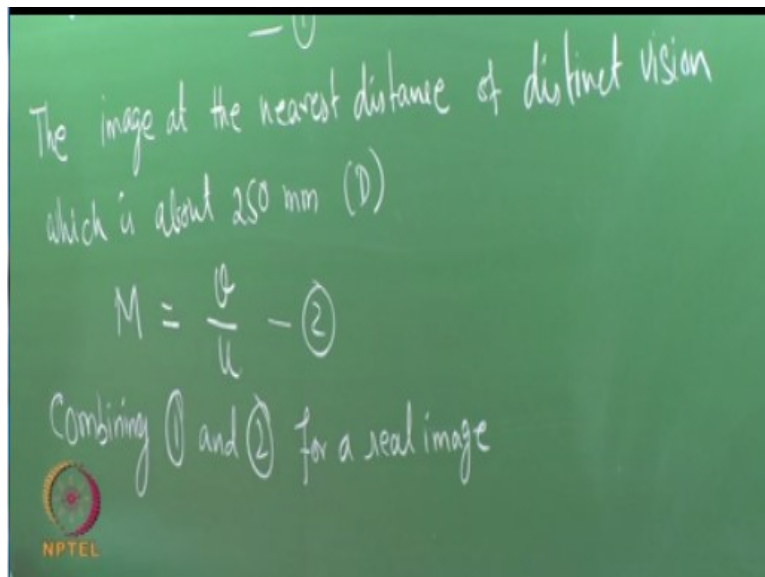 — ①
The image at the nearest distance of distinct vision
which is about 250 mm (D)
M = v/u — ②
Combining ① and ② for a real image
NPTEL